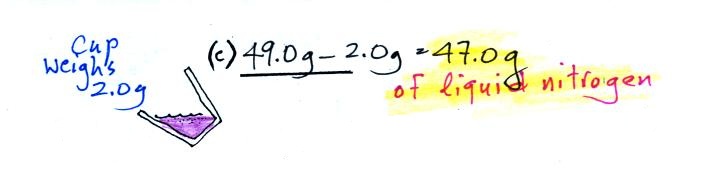 Cup
weighs
2.0g
(c) 49.0g - 2.0g = 47.0g
of liquid nitrogen